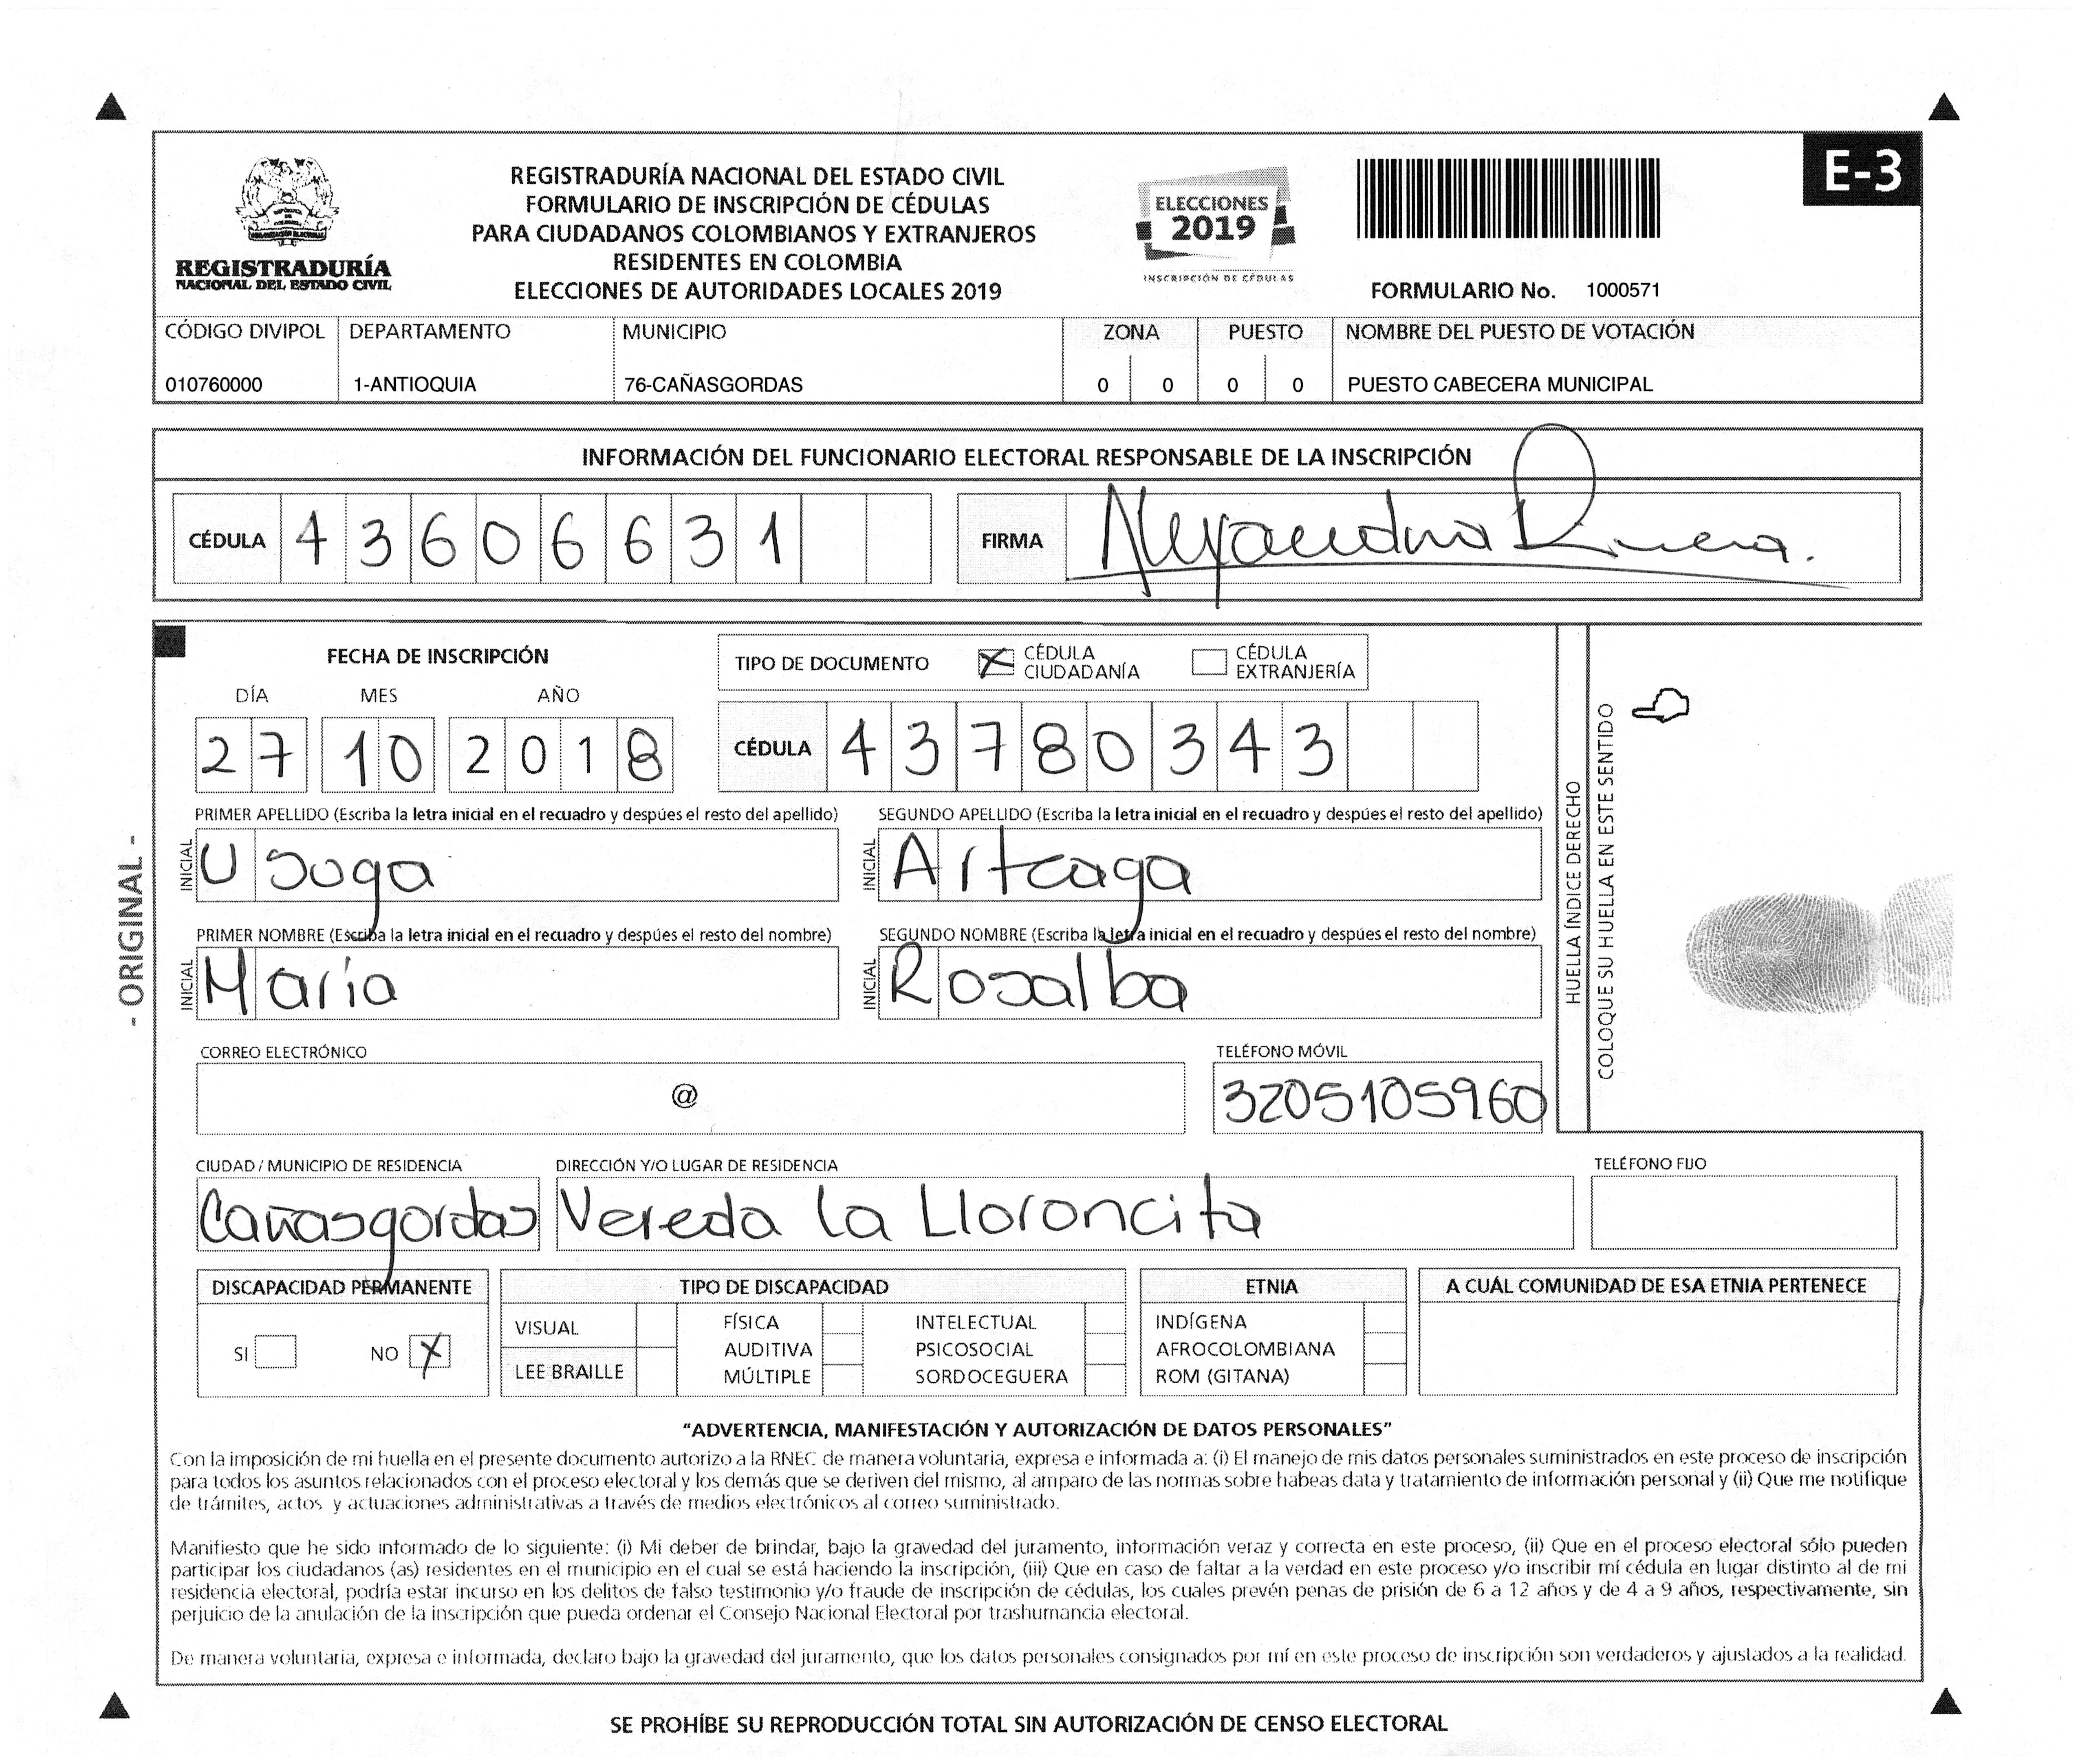 E-3
REGISTRADURÍA
NACIONAL DEL ESTADO CIVIL
REGISTRADURÍA NACIONAL DEL ESTADO CIVIL
FORMULARIO DE INSCRIPCIÓN DE CÉDULAS
PARA CIUDADANOS COLOMBIANOS Y EXTRANJEROS
RESIDENTES EN COLOMBIA
ELECCIONES DE AUTORIDADES LOCALES 2019
ELECCIONES
2019
INSCRIPCIÓN DE CÉDULAS
FORMULARIO No. 1000571
CÓDIGO DIVIPOL DEPARTAMENTO MUNICIPIO ZONA PUESTO NOMBRE DEL PUESTO DE VOTACIÓN
010760000 1-ANTIOQUIA 76-CAÑASGORDAS 0 0 0 0 PUESTO CABECERA MUNICIPAL
INFORMACIÓN DEL FUNCIONARIO ELECTORAL RESPONSABLE DE LA INSCRIPCIÓN
CÉDULA 43606631 FIRMA Alejandra Rivera.
FECHA DE INSCRIPCIÓN
DÍA MES AÑO
27 10 2018
TIPO DE DOCUMENTO X CÉDULA CIUDADANÍA CÉDULA EXTRANJERÍA
CÉDULA 43780343
PRIMER APELLIDO (Escriba la letra inicial en el recuadro y despúes el resto del apellido) SEGUNDO APELLIDO (Escriba la letra inicial en el recuadro y despúes el resto del apellido)
INICIAL Usuga INICIAL Arteaga
PRIMER NOMBRE (Escriba la letra inicial en el recuadro y despúes el resto del nombre) SEGUNDO NOMBRE (Escriba la letra inicial en el recuadro y despúes el resto del nombre)
INICIAL María INICIAL Rosalba
HUELLA ÍNDICE DERECHO
COLOQUE SU HUELLA EN ESTE SENTIDO
- ORIGINAL -
CORREO ELECTRÓNICO TELÉFONO MÓVIL
@ 3205105960
CIUDAD / MUNICIPIO DE RESIDENCIA DIRECCIÓN Y/O LUGAR DE RESIDENCIA TELÉFONO FIJO
Cañasgordas Vereda la Lloroncita
DISCAPACIDAD PERMANENTE TIPO DE DISCAPACIDAD ETNIA A CUÁL COMUNIDAD DE ESA ETNIA PERTENECE
SI NO X
VISUAL FÍSICA INTELECTUAL INDÍGENA
AUDITIVA PSICOSOCIAL AFROCOLOMBIANA
LEE BRAILLE MÚLTIPLE SORDOCEGUERA ROM (GITANA)
"ADVERTENCIA, MANIFESTACIÓN Y AUTORIZACIÓN DE DATOS PERSONALES"
Con la imposición de mi huella en el presente documento autorizo a la RNEC de manera voluntaria, expresa e informada a: (i) El manejo de mis datos personales suministrados en este proceso de inscripción
para todos los asuntos relacionados con el proceso electoral y los demás que se deriven del mismo, al amparo de las normas sobre habeas data y tratamiento de información personal y (ii) Que me notifique
de trámites, actos y actuaciones administrativas a través de medios electrónicos al correo suministrado.
Manifiesto que he sido informado de lo siguiente: (i) Mi deber de brindar, bajo la gravedad del juramento, información veraz y correcta en este proceso, (ii) Que en el proceso electoral sólo pueden
participar los ciudadanos (as) residentes en el municipio en el cual se está haciendo la inscripción, (iii) Que en caso de faltar a la verdad en este proceso y/o inscribir mí cédula en lugar distinto al de mi
residencia electoral, podría estar incurso en los delitos de falso testimonio y/o fraude de inscripción de cédulas, los cuales prevén penas de prisión de 6 a 12 años y de 4 a 9 años, respectivamente, sin
perjuicio de la anulación de la inscripción que pueda ordenar el Consejo Nacional Electoral por trashumancia electoral.
De manera voluntaria, expresa e informada, declaro bajo la gravedad del juramento, que los datos personales consignados por mí en este proceso de inscripción son verdaderos y ajustados a la realidad.
SE PROHÍBE SU REPRODUCCIÓN TOTAL SIN AUTORIZACIÓN DE CENSO ELECTORAL